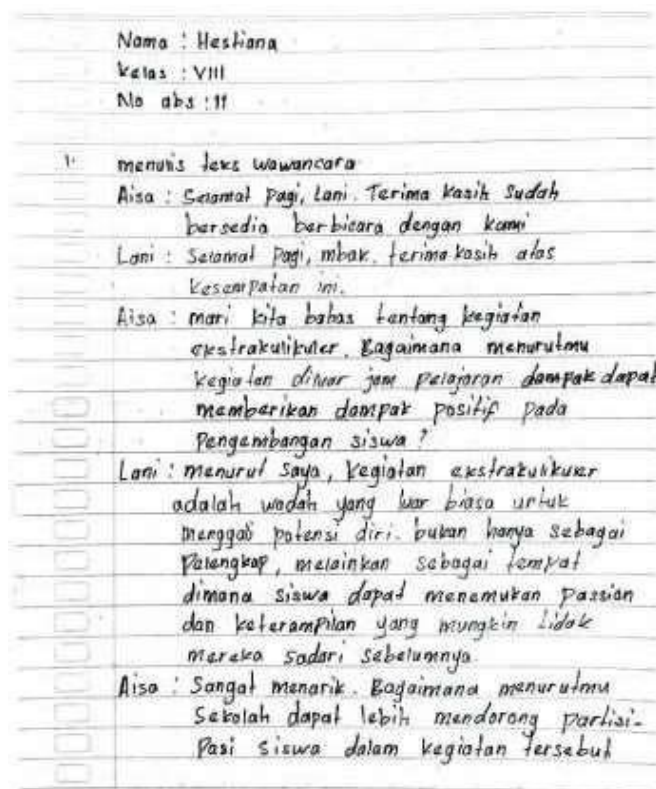 Nama : Hestiana
Kelas : VIII
No abs : 11
1. menulis teks wawancara
Aisa : Selamat Pagi, Lani. Terima kasih sudah
bersedia berbicara dengan kami
Lani : Selamat Pagi, mbak. terima kasih atas
kesempatan ini.
Aisa : mari kita bahas tentang kegiatan
ekstrakulikuler. Bagaimana menurutmu
kegiatan diluar jam pelajaran dampak dapat
memberikan dampak positif pada
Pengembangan siswa ?
Lani : menurut saya, kegiatan ekstrakulikuler
adalah wadah yang luar biasa untuk
menggali potensi diri. bukan hanya sebagai
Pelengkap, melainkan sebagai tempat
dimana siswa dapat menemukan Passion
dan keterampilan yang mungkin tidak
mereka sadari sebelumnya.
Aisa : Sangat menarik. Bagaimana menurutmu
Sekolah dapat lebih mendorong partisi-
Pasi siswa dalam kegiatan tersebut